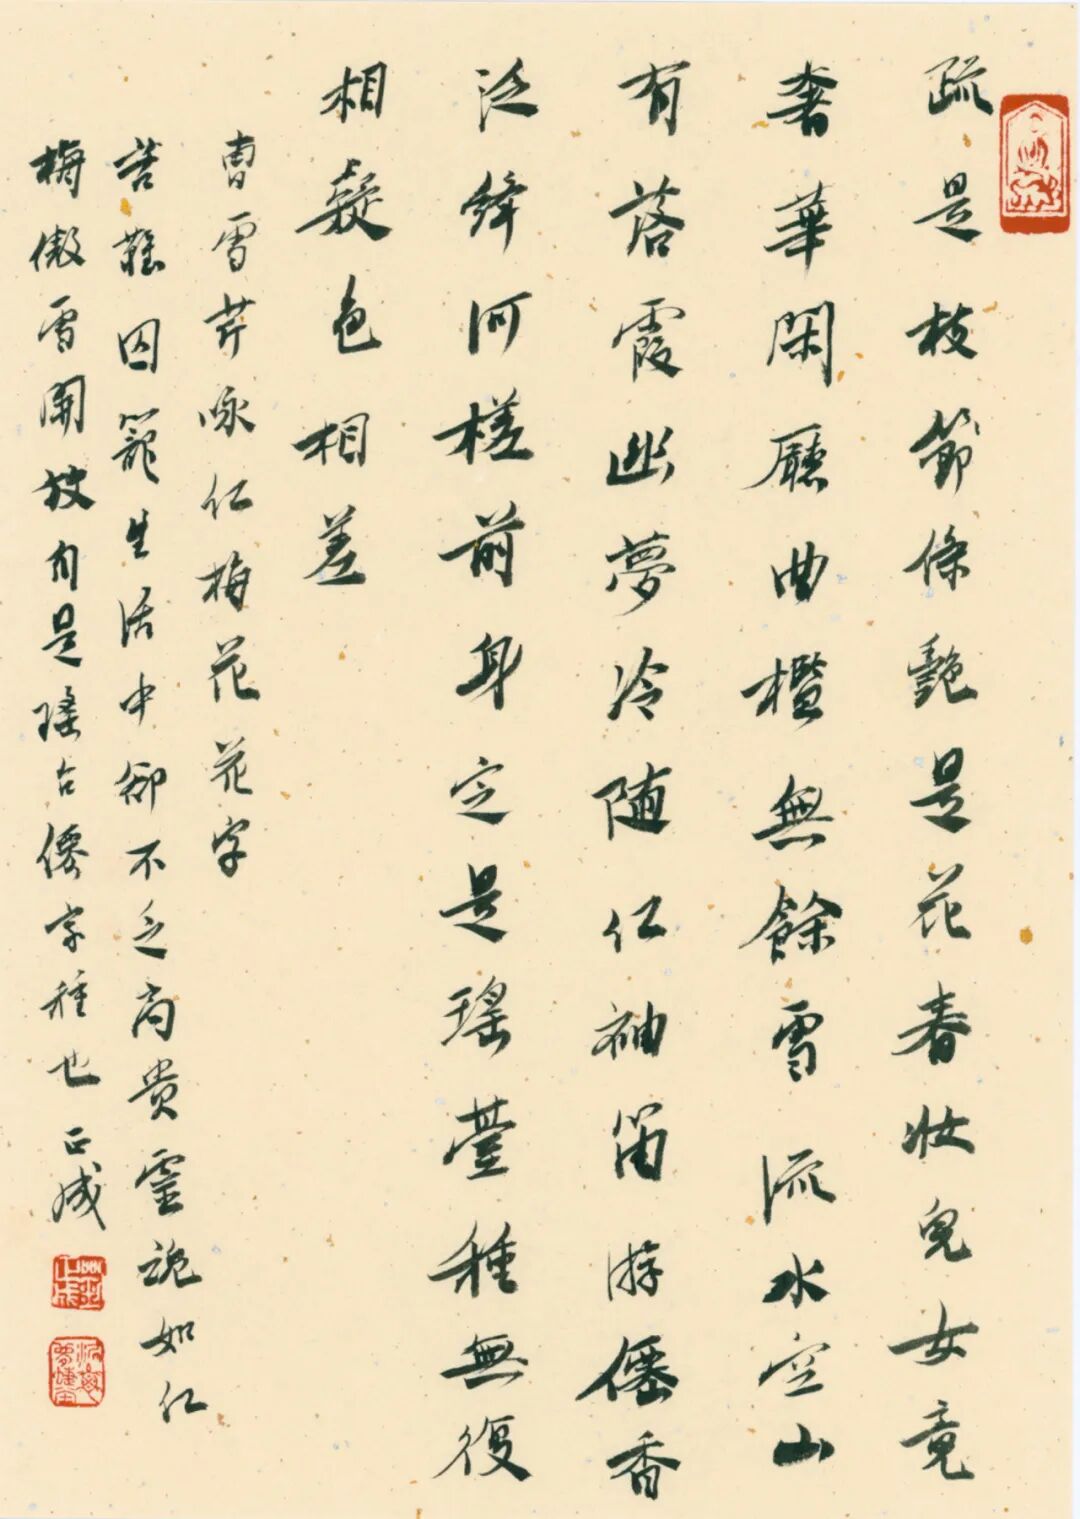 疏是枝節條艷是花春妝兒女竟
奢華閑廳曲檻無餘雪流水空山
有落霞幽夢冷随紅袖笛游僊香
泛絳河槎前身定是瑤臺種無復
相疑色相差
曹雪芹詠紅梅花花字
苦難囚籠生活中卻不乏高貴靈魂如紅
梅傲雪開放自是瑤台僊字種也 正成